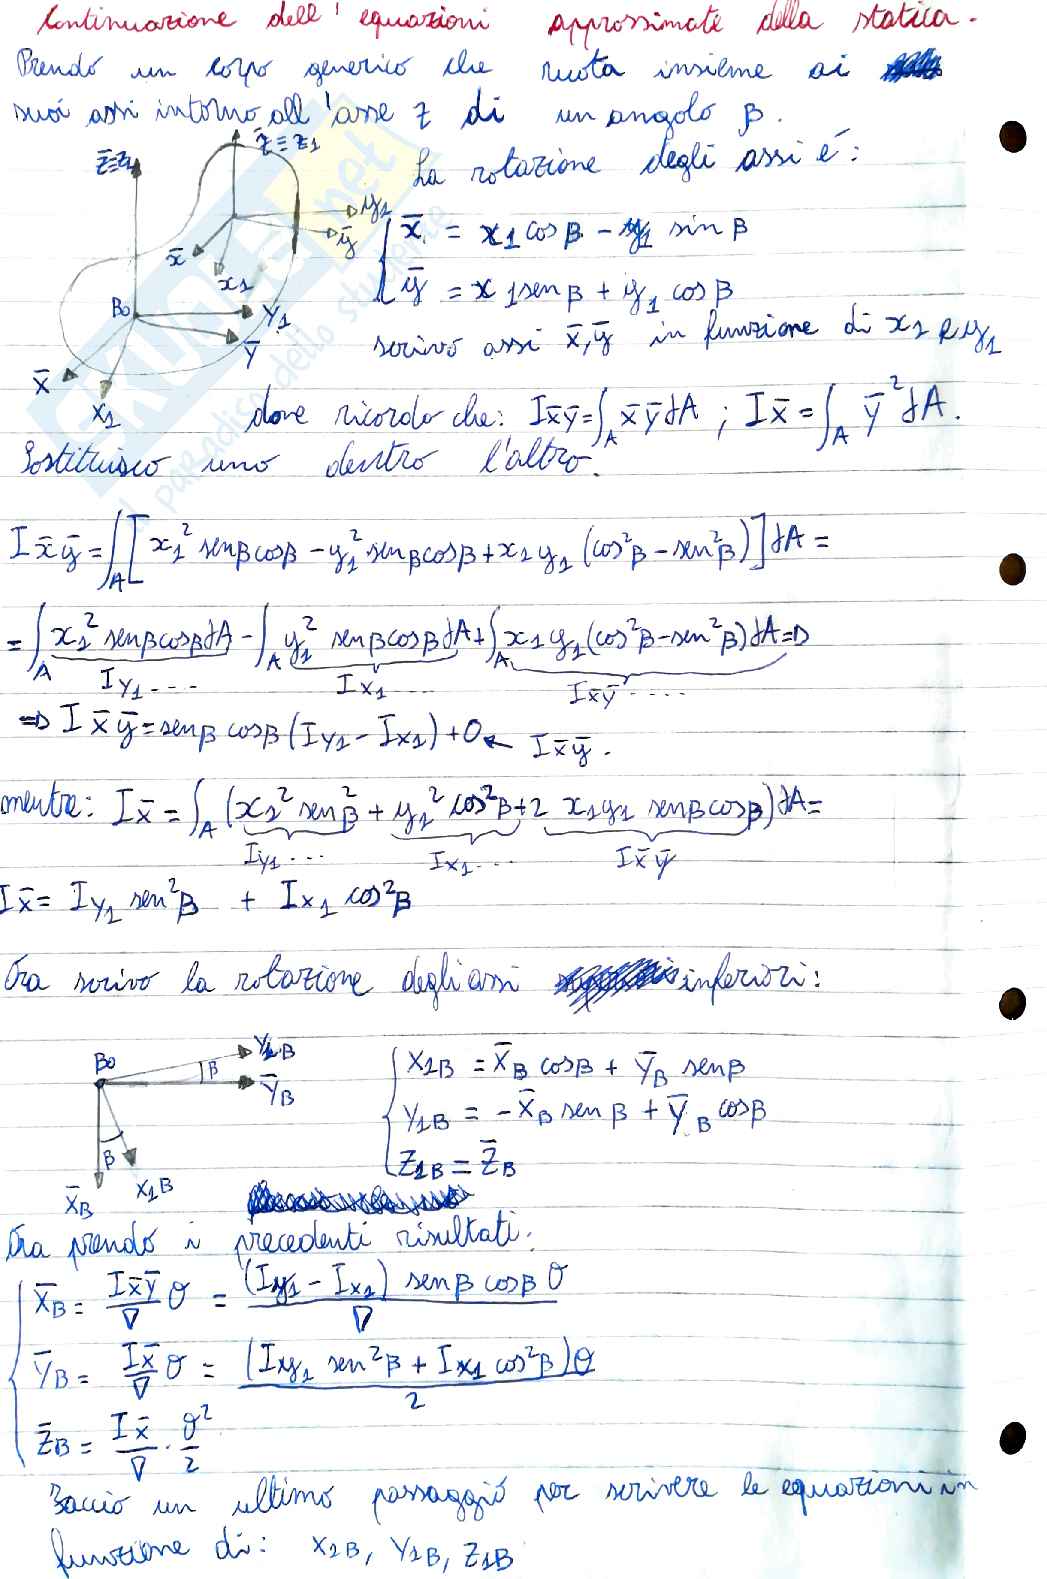 Continuazione dell' equazioni approssimate della statica.
Prendo un corpo generico che ruota insieme ai
suoi assi intorno all'asse z di un angolo β.
z̄≡z₁
z̄≡z₁
La rotazione degli assi é:
y₁
ȳ
x̄
x₁
{ x̄ = x₁ cos β - y₁ sin β
ȳ = x₁ sen β + y₁ cos β
B₀
Y₁
Ȳ
X̄
X₁
scrivo assi x̄, ȳ in funzione di x₁ e y₁
dove ricordo che: Ix̄ȳ = ∫_A x̄ȳ dA ; Ix̄ = ∫_A ȳ² dA.
Sostituisco uno dentro l'altro.
Ix̄ȳ = ∫_A [x₁² senβcosβ - y₁² senβcosβ + x₁y₁ (cos²β - sen²β)] dA =
= ∫_A x₁² senβcosβ dA - ∫_A y₁² senβcosβ dA + ∫_A x₁y₁ (cos²β - sen²β) dA =>
Iy₁ .... Ix₁ .... Ix̄ȳ ....
=> Ix̄ȳ = senβ cosβ (Iy₁ - Ix₁) + 0 ← Ix̄ȳ.
mentre: Ix̄ = ∫_A (x₁² sen²β + y₁² cos²β + 2 x₁y₁ senβcosβ) dA =
Iy₁ ... Ix₁ ... Ix̄ȳ
Ix̄ = Iy₁ sen²β + Ix₁ cos²β
Ora scrivo la rotazione degli assi inferiori:
B₀
Y₁B
β
ȲB
β
X̄B
X₁B
{ X₁B = X̄B cosβ + ȲB senβ
Y₁B = -X̄B senβ + ȲB cosβ
Z₁B = Z̄B
Ora prendo i precedenti risultati:
{ X̄B = Ix̄ȳ/∇ θ = (Iy₁ - Ix₁) senβ cosβ θ / ∇
ȲB = Ix̄/∇ θ = (Iy₁ sen²β + Ix₁ cos²β)θ / 2
Z̄B = Ix̄/∇ · θ²/2
Faccio un ultimo passaggio per scrivere le equazioni in
funzione di: X₁B, Y₁B, Z₁B